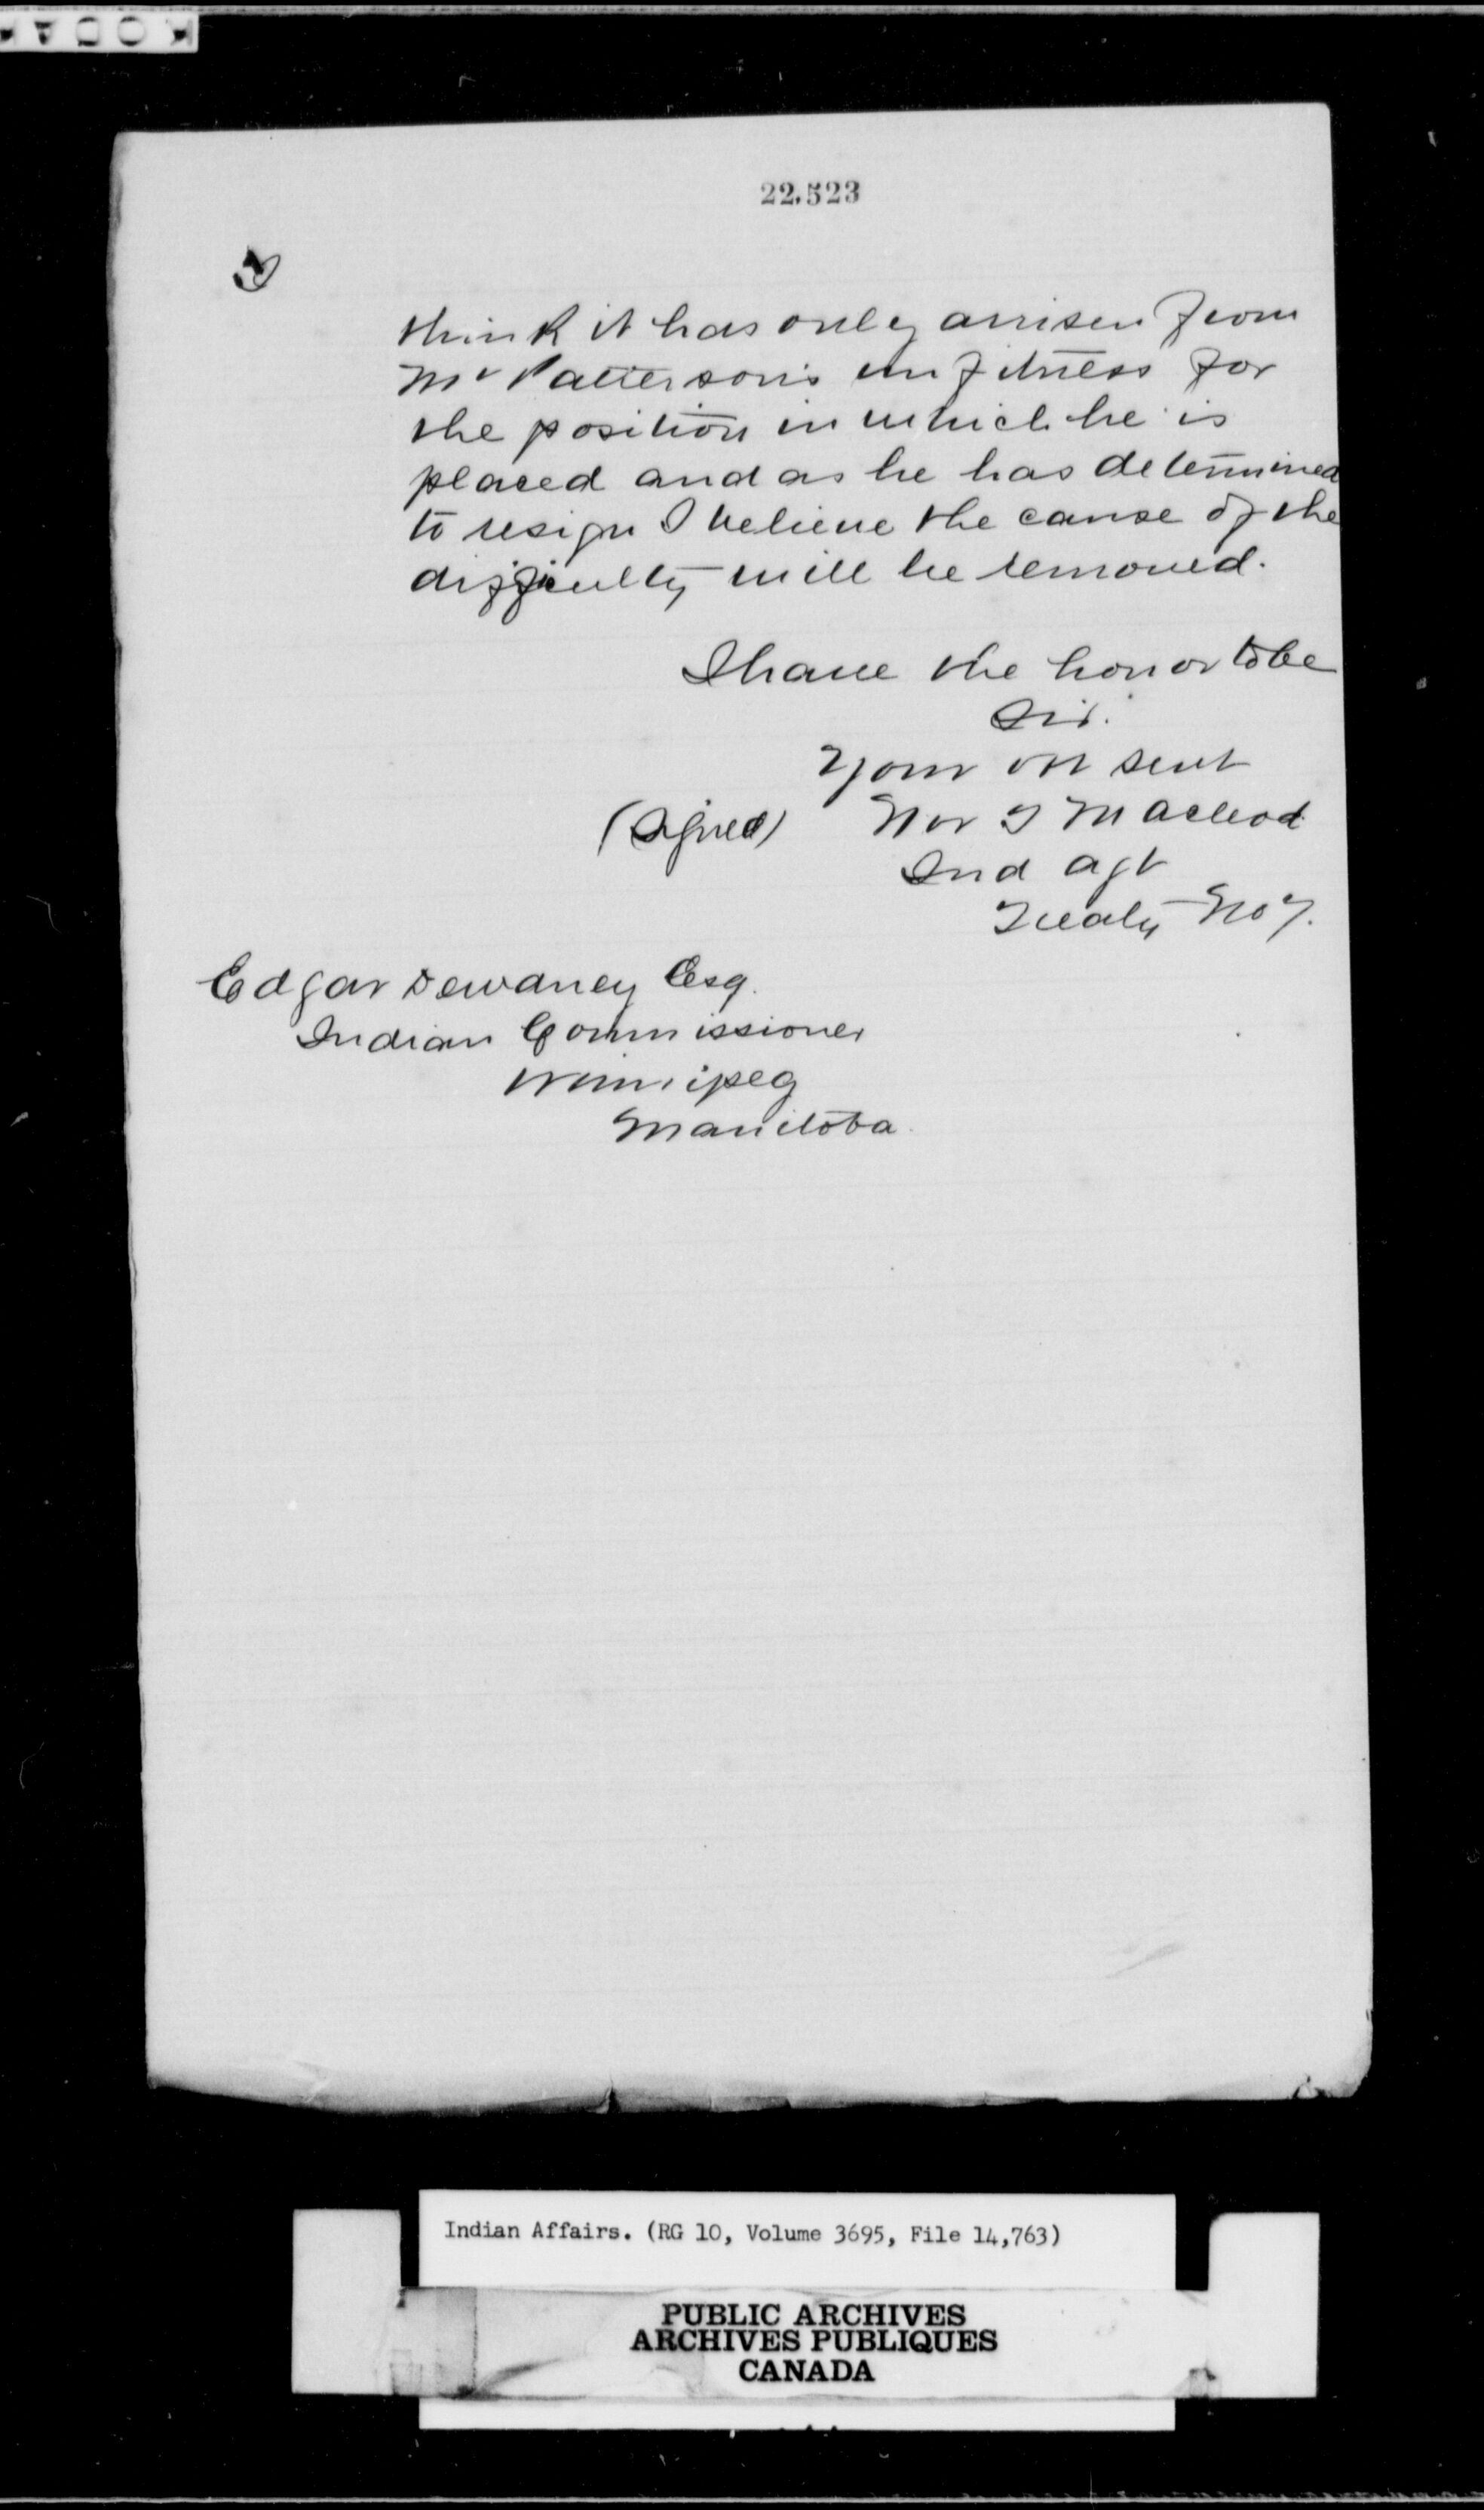 22,523
think it has only arrisen from
Mr Patterson's unfitness for
the position in which he is
placed and as he has determined
to resign I believe the cause of the
difficulty will be removed.
I have the honor to be
Sir.
Your obt servt
(Signed) Nor T Macleod
Ind Agt
Treaty No 7.
Edgar Dewdney Esq.
Indian Commissioner
Winnipeg
Manitoba.
Indian Affairs. (RG 10, Volume 3695, File 14,763)
PUBLIC ARCHIVES
ARCHIVES PUBLIQUES
CANADA